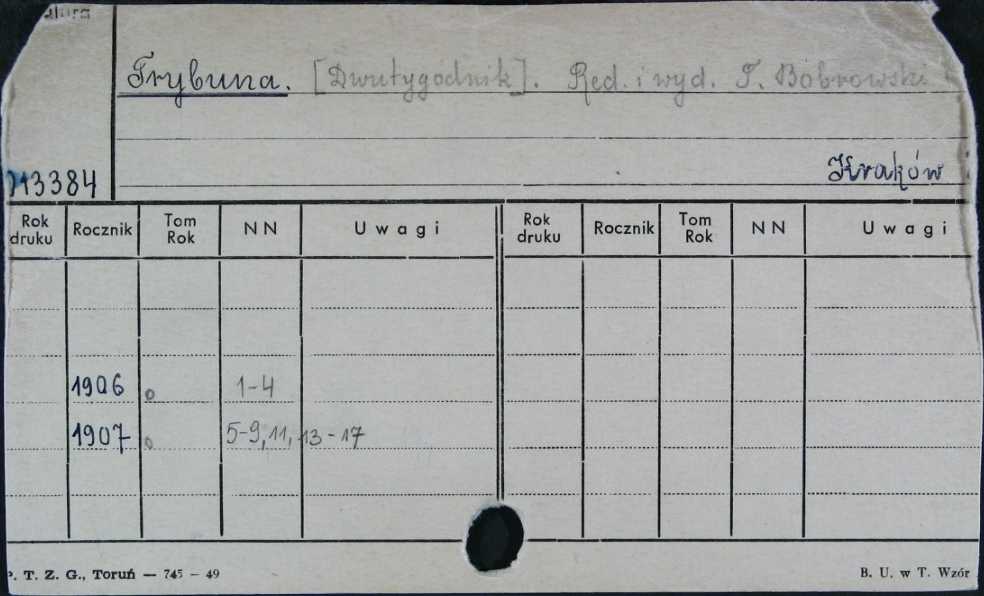 Trybuna. [Dwutygodnik]. Red. i wyd. T. Bobrowski
Kraków
013384
Rok druku Rocznik Tom Rok NN Uwagi Rok druku Rocznik Tom Rok NN Uwagi
1906 o 1-4
1907 o 5-9, 11, 13-17
P. T. Z. G., Toruń — 745 — 49 B. U. w T. Wzór